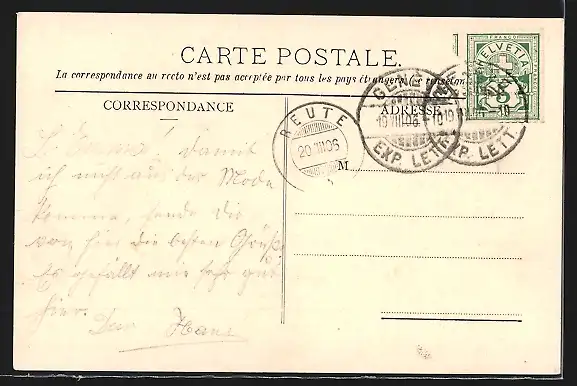 CARTE POSTALE.
La correspondance au recto n'est pas acceptée par tous les pays étrangers. (Se renseigner
CORRESPONDANCE
ADRESSE
FRANCO
HELVETIA
5
GENÈ
19.III.06. - 10
EXP. LETT.
GENÈ
19.III 10
EXP. LETT.
REUTE
20.III.06
M
L. Emma! Damit
ich nicht aus der Mode
komme, sende dir
von hier die besten Grüße.
Es gefällt mir sehr gut
hier.
Dein Hans